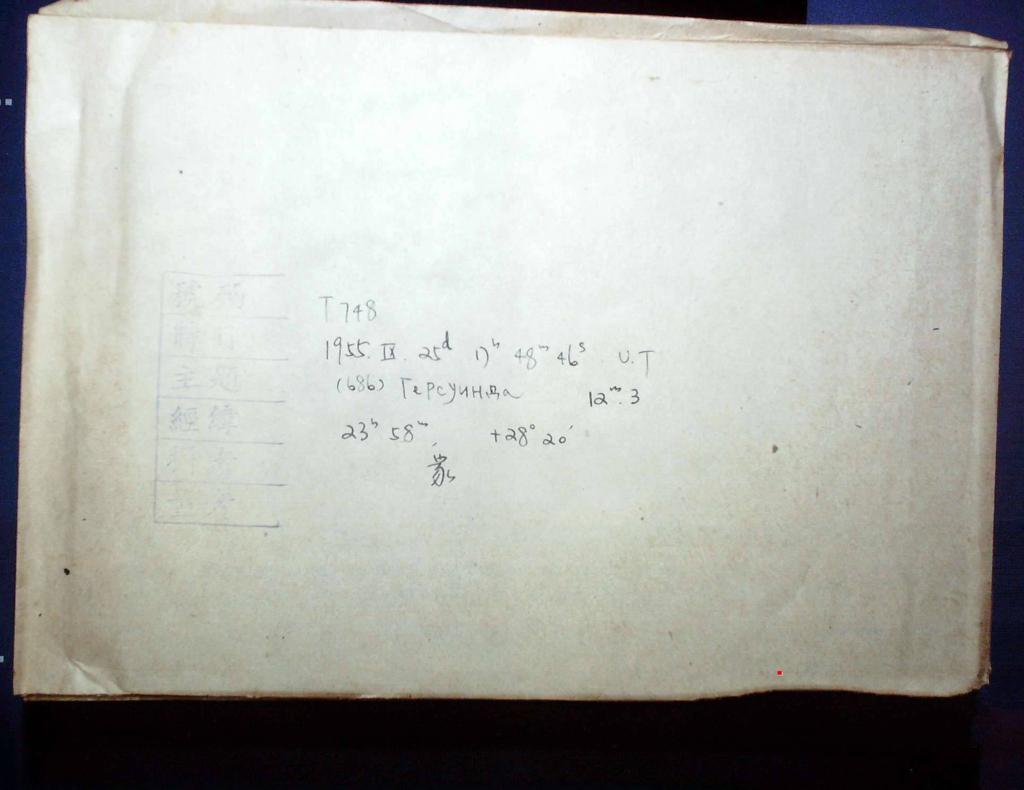 T 748
1955. IX. 25ᵈ 17ʰ 48ᵐ 46ˢ U.T
(686) Герсуинда 12ᵐ.3
23ʰ 58ᵐ, +28° 20′
經緯